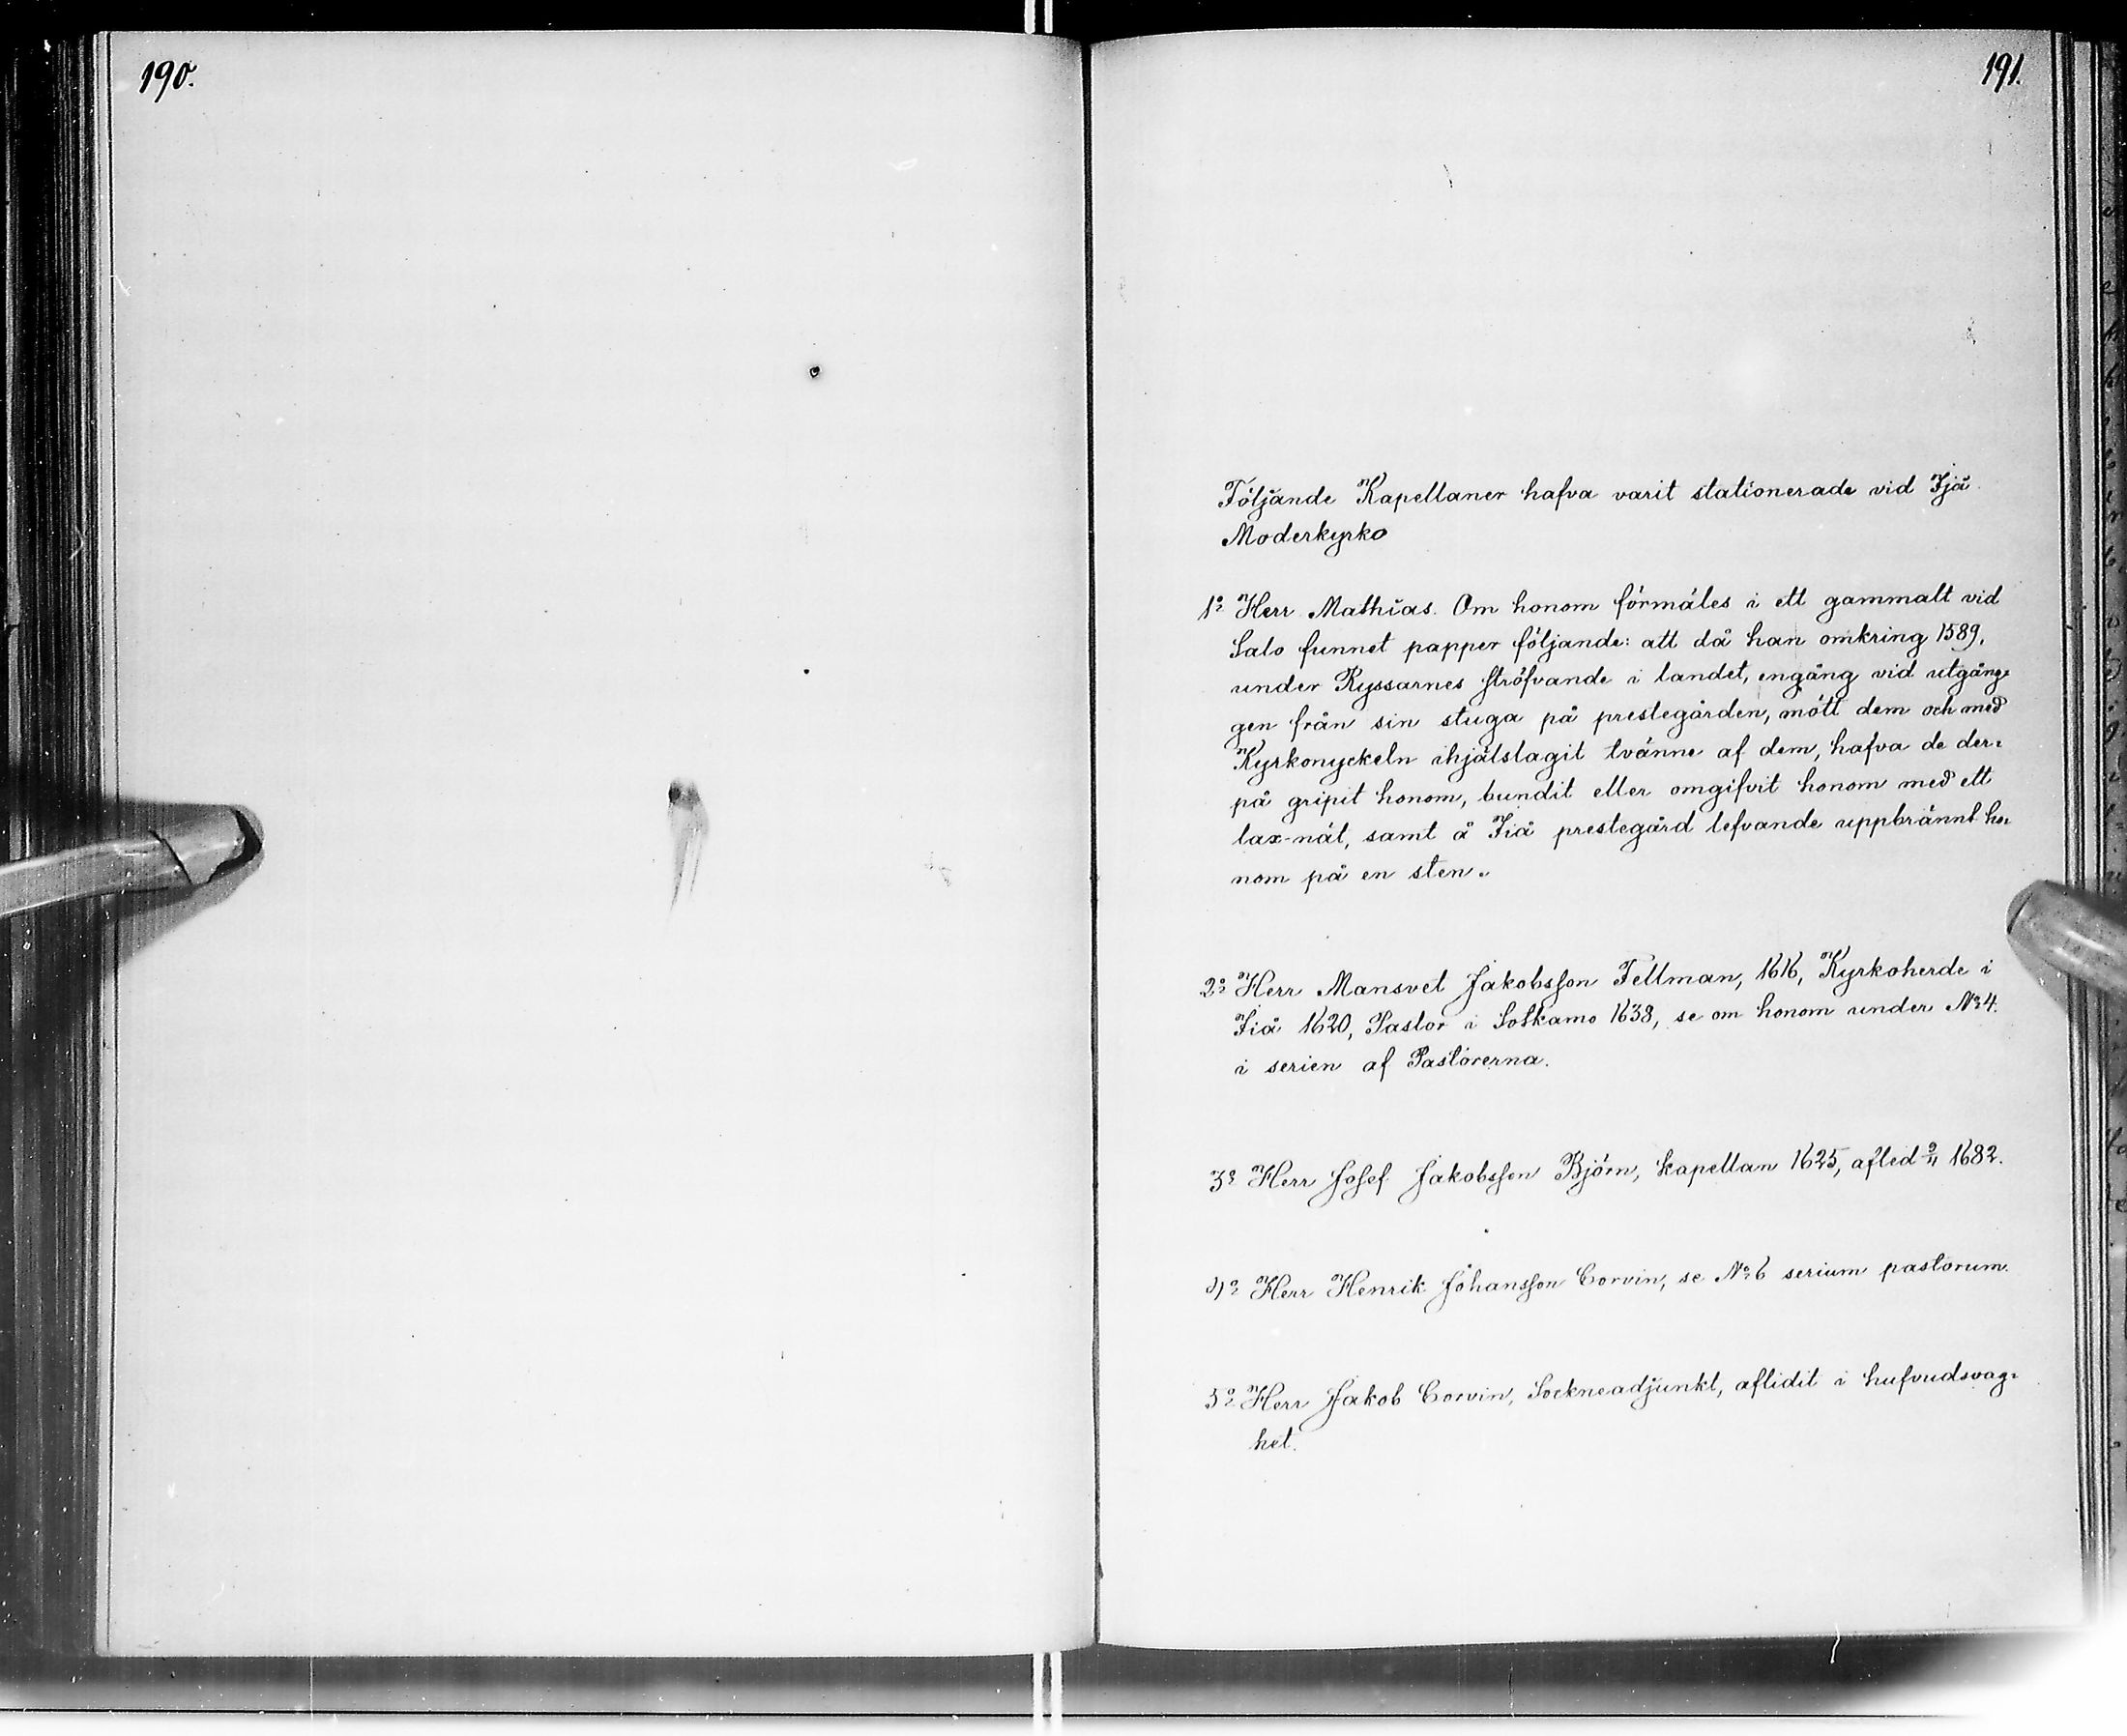 190.
191.
Följande Kapellaner hafva varit stationerade vid Ijå
Moderkyrko
1º Herr Mathias. Om honom förmåles i ett gammalt vid
Salo funnet papper följande: att då han omkring 1589,
under Ryssarnes ströfvande i landet, engång vid utgång=
gen från sin stuga på prestegården, mött dem och med
Kyrkonyckeln ihjälslagit tvänne af dem, hafva de der=
på gripit honom, bundit eller omgifvit honom med ett
lax-nät, samt å Iiå prestegård lefvande uppbrännt ho=
nom på en sten.
2º Herr Mansvet Jakobsson Fellman, 1616, Kyrkoherde i
Iiå 1620, Pastor i Sotkamo 1638, se om honom under Nº 4.
i serien af Pastorerna.
3º Herr Josef Jakobsson Björn, kapellan 1625, afled 9/11 1682.
4º Herr Henrik Johansson Corvin, se Nº 6 serium pastorum.
5º Herr Jakob Corvin, Sockneadjunkt, aflidit i hufvudsvag=
het.